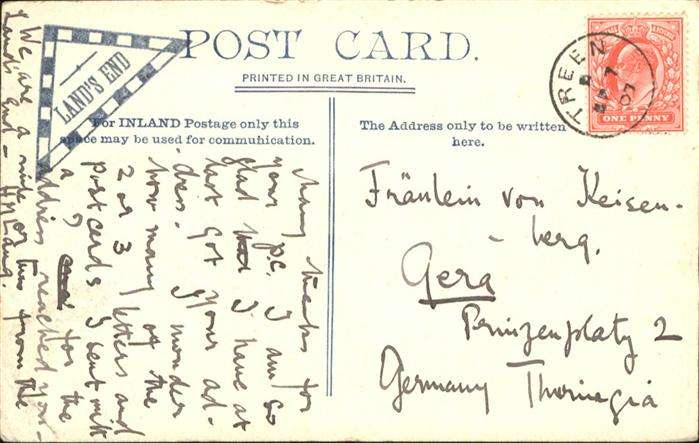 POST CARD.
PRINTED IN GREAT BRITAIN.
LAND'S END
For INLAND Postage only this
space may be used for communication.
The Address only to be written
here.
TREEN
07
ONE PENNY
Many thanks for
your pc. I am so
glad I have at
last got your ad-
dress. I wonder
how many of the
2 or 3 letters and
postcards I sent with
a ? for the
address reached you -
We are a mile or two from the
Land's End -
Fräulein von Keisen-
berg.
Gera
Prinzenplatz 2
Germany Thuringia